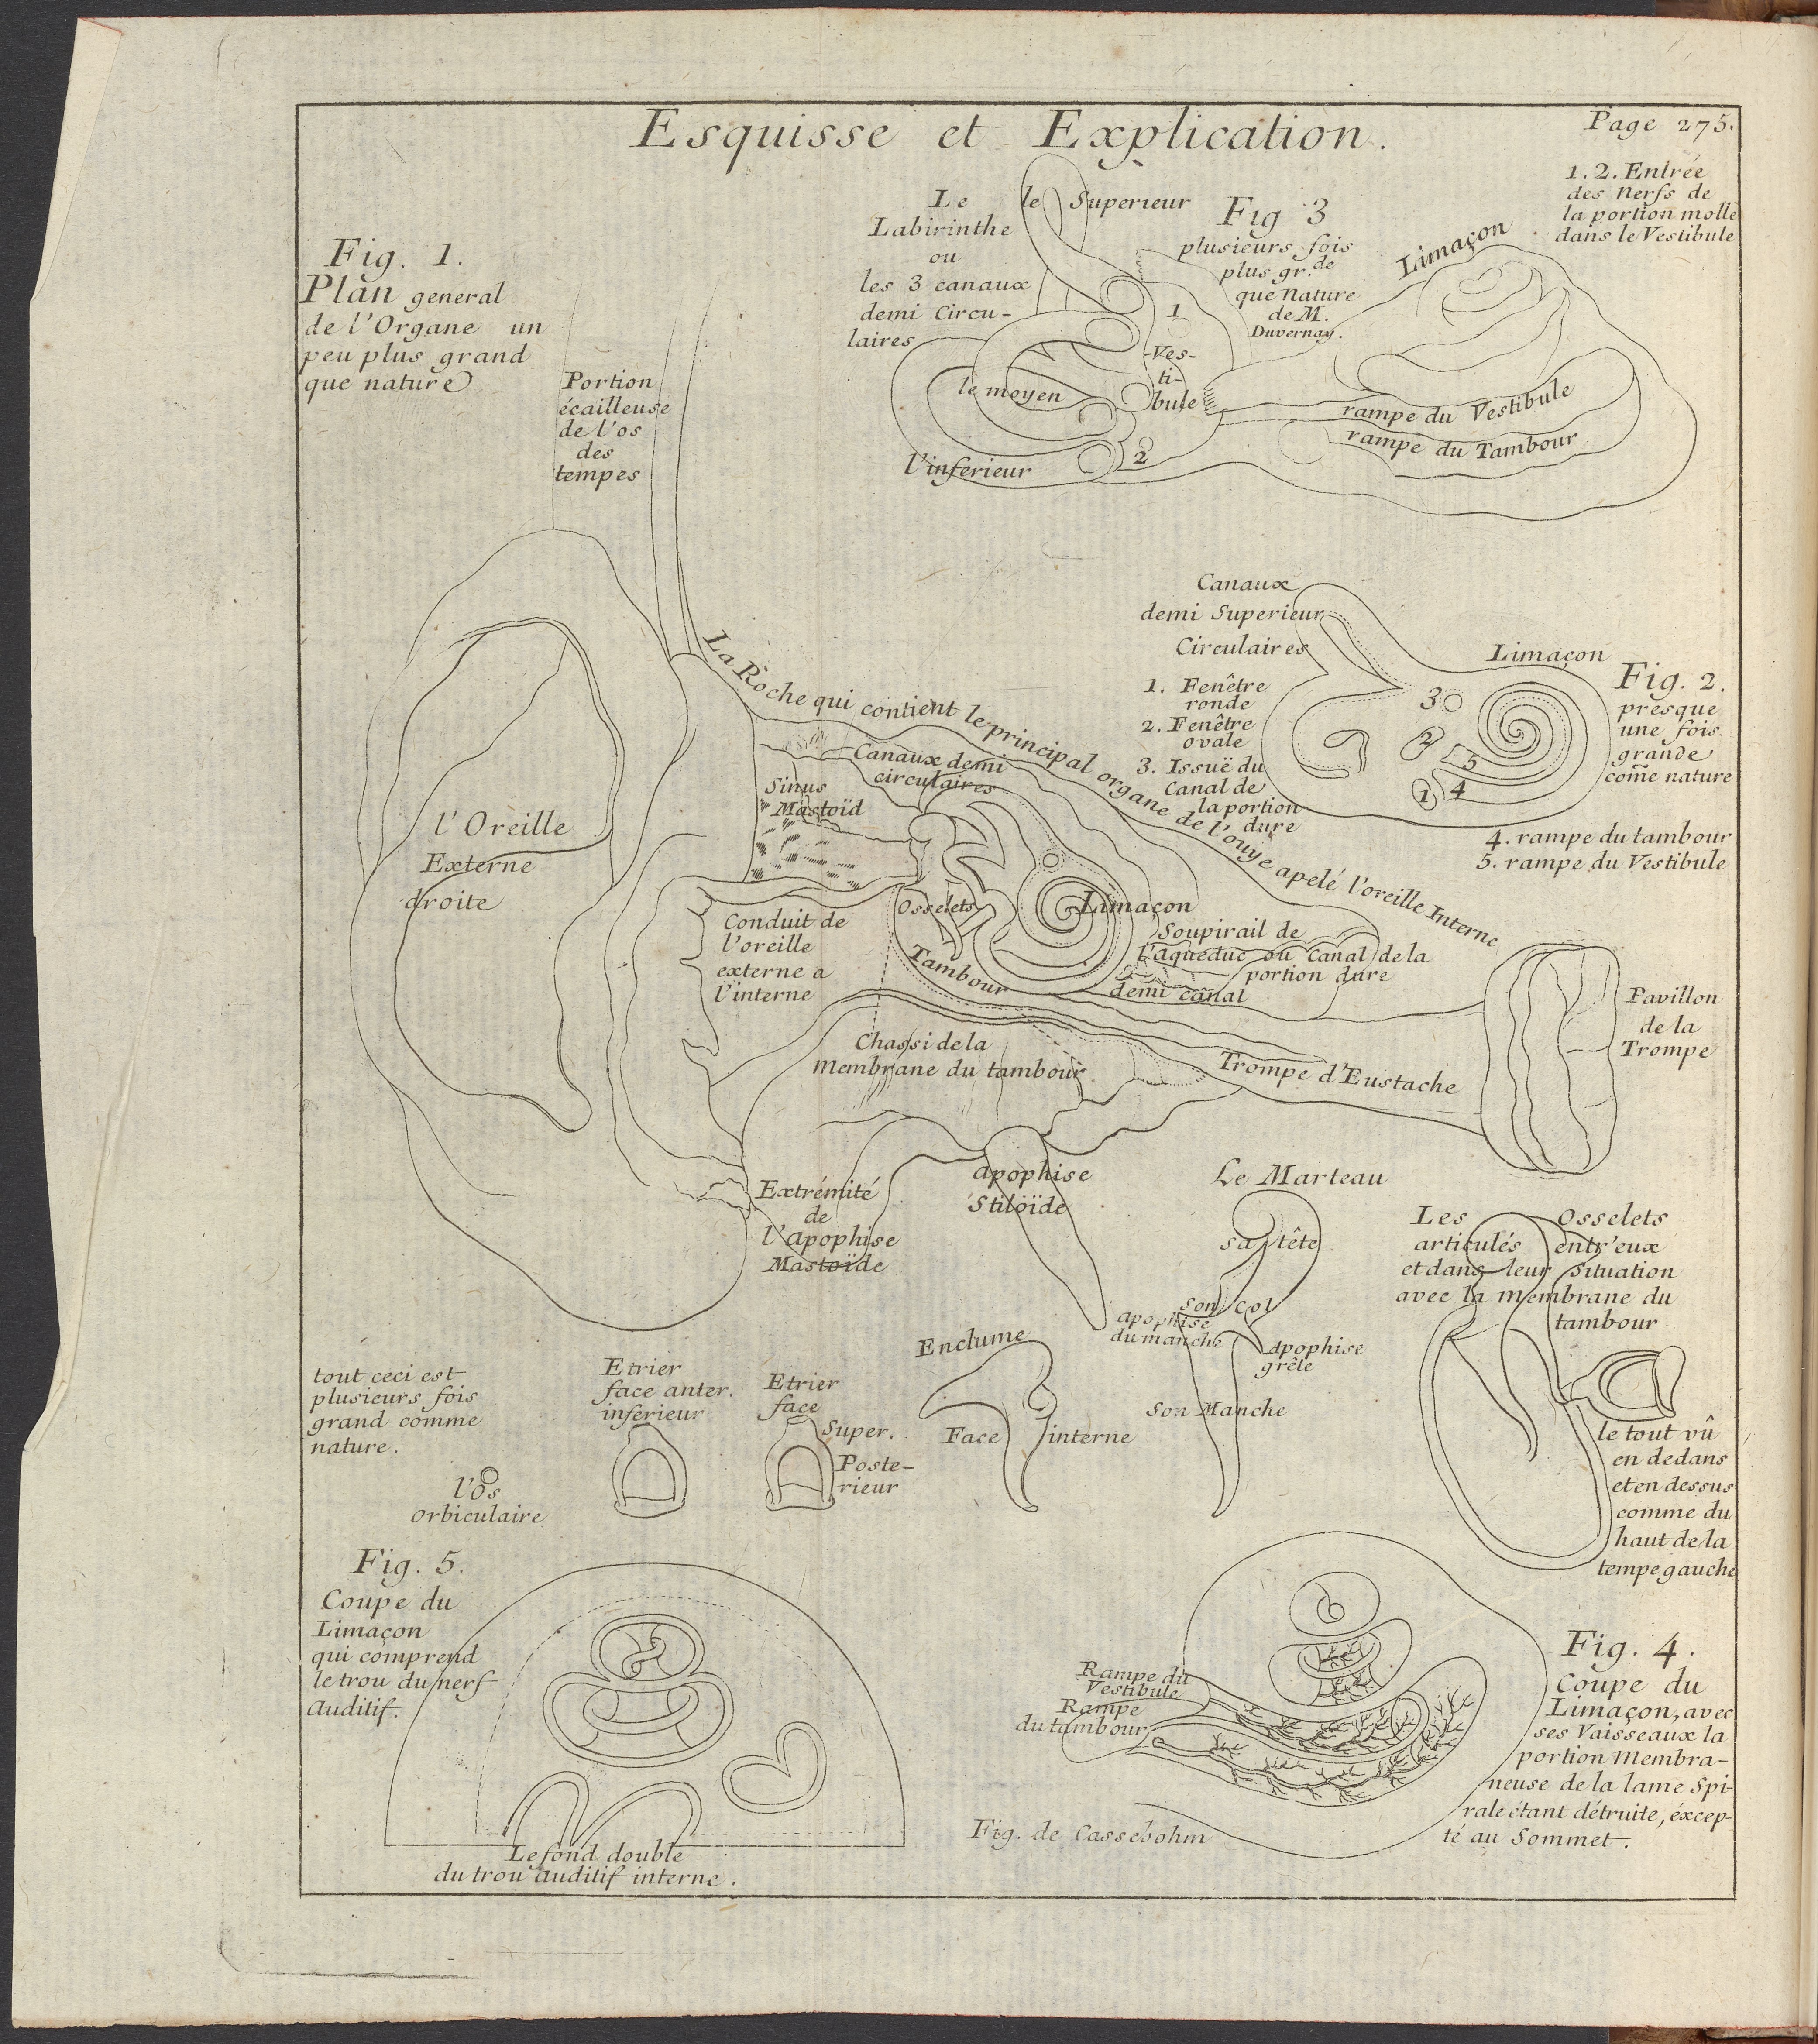 Esquisse et Explication.
Page 275.
Fig. 1.
Plan general
de l'Organe un
peu plus grand
que nature
Portion
écailleuse
de l'os
des
tempes
Le
Labirinthe
ou
les 3 canaux
demi Circu-
laires
le Superieur
le moyen
l'inferieur
Fig 3
plusieurs fois
plus gr.de
que Nature
de M.
Duvernay.
1
Ves-
ti-
bule
2
Limaçon
rampe du Vestibule
rampe du Tambour
1. 2. Entrée
des Nerfs de
la portion molle
dans le Vestibule
Canaux
demi Superieur
Circulaires
1. Fenêtre
ronde
2. Fenêtre
ovale
3. Issuë du
Canal de
la portion
dure
Limaçon
3
2
5
1 4
Fig. 2.
presque
une fois
grande
come nature
4. rampe du tambour
5. rampe du Vestibule
La Roche qui contient le principal organe de l'ouye apelé l'oreille Interne
l'Oreille
Externe
droite
Canaux demi
circulaires
Sinus
Mastoïd
Conduit de
l'oreille
externe a
l'interne
Osselets
Limaçon
Tambour
Soupirail de
l'aqueduc ou Canal de la
portion dure
demi canal
Chassi de la
Membrane du tambour
Trompe d'Eustache
Pavillon
de la
Trompe
Extrémité
de
l'Apophise
Mastoïde
apophise
Stiloïde
Le Marteau
sa tête
son col
apophise
du manche
Apophise
grêle
Son Manche
Les Osselets
articulés entr'eux
et dans leur Situation
avec la membrane du
tambour
le tout vû
en dedans
et en dessus
comme du
haut de la
tempe gauche
tout ceci est
plusieurs fois
grand comme
nature.
l'Os
orbiculaire
Etrier
face anter.
inferieur
Etrier
face
Super.
Poste-
rieur
Enclume
Face interne
Fig. 5.
Coupe du
Limaçon
qui comprend
le trou du nerf
Auditif.
Le fond double
du trou Auditif interne.
Rampe du
Vestibule
Rampe
du tambour
Fig. de Cassebohm
Fig. 4.
Coupe du
Limaçon, avec
ses Vaisseaux la
portion Membra-
neuse de la lame Spi-
rale étant détruite, éxcep-
té au Sommet.